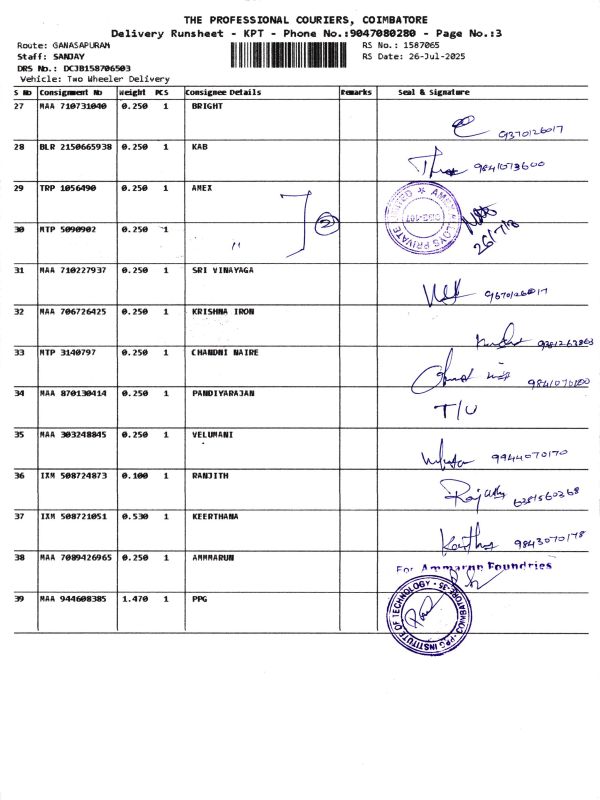 THE PROFESSIONAL COURIERS, COIMBATORE
Delivery Runsheet - KPT - Phone No.:9047080280 - Page No.:3
Route: GANASAPURAM RS No.: 1587065
Staff: SANJAY RS Date: 26-Jul-2025
DRS No.: DCJB158706503
Vehicle: Two Wheeler Delivery
S No Consignment No Weight PCS Consignee Details Remarks Seal & Signature
27 MAA 710731040 0.250 1 BRIGHT
9370126017
28 BLR 2150665938 0.250 1 KAB
9841073600
29 TRP 1056490 0.250 1 AMEX
AMEX ALLOYS PRIVATE LIMITED
2
30 MTP 5090902 0.250 1 "
26/7/8
31 MAA 710227937 0.250 1 SRI VINAYAGA
9670126017
32 MAA 706726425 0.250 1 KRISHNA IRON
33 MTP 3140797 0.250 1 CHANDNI NAIRE
9841070100
34 MAA 870130414 0.250 1 PANDIYARAJAN
T/U
35 MAA 303248845 0.250 1 VELUMANI
9944070170
36 IXM 508724873 0.100 1 RANJITH
6381560368
37 IXM 508721051 0.530 1 KEERTHANA
9843070178
38 MAA 7089426965 0.250 1 AMMMARUN
For Ammarun Foundries
39 MAA 944608385 1.470 1 PPG
PPG INSTITUTE OF TECHNOLOGY COIMBATORE-35